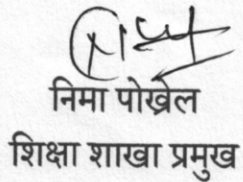 निमा पोख्रेल
शिक्षा शाखा प्रमुख